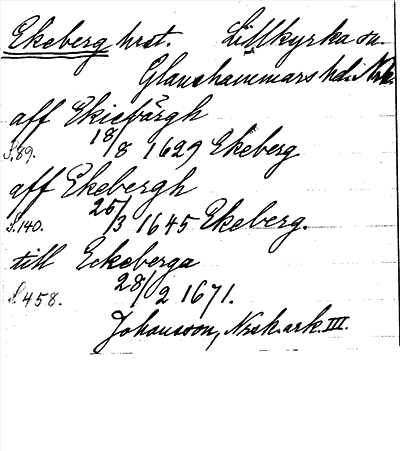 Ekeberg hrst. Lillkyrka sn.
Glanshammars hd. Nrk.
aff Ekiebärgh
S.89. 18/8 1629 Ekeberg
aff Ekebergh
S.140. 25/3 1645 Ekeberg.
till Eckeberga
S.458. 28/2 1671.
Johansson, Nrsk. ark. III.